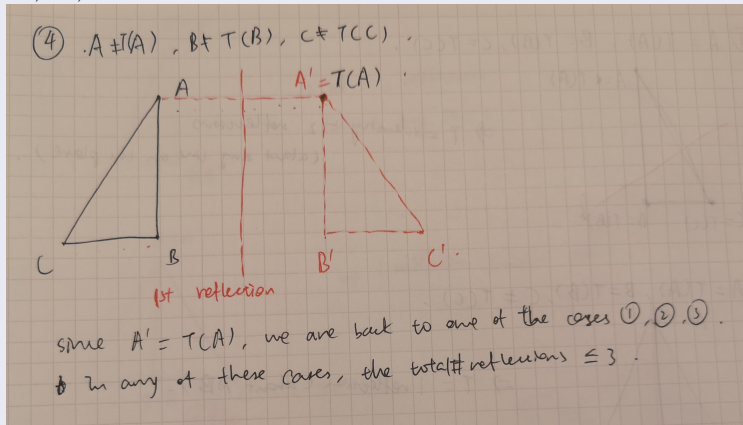 ④ . A ≠ T(A) , B ≠ T(B), C ≠ T(C) .
A
A' = T(A) .
C
B
B'
C' .
1st reflection
since A' = T(A), we are back to one of the cases ①, ②, ③ .
In any of these cases, the total # reflections ≤ 3 .